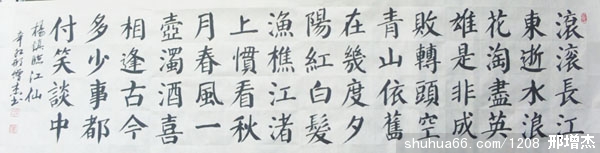 滾滾長江
東逝水浪
花淘盡英
雄是非成
敗轉頭空
青山依舊
在幾度夕
陽紅白髮
漁樵江渚
上慣看秋
月春風一
壺濁酒喜
相逢古今
多少事都
付笑談中
楊慎臨江仙
辛丑邢增杰書
shuhua66.com/1208 邢增杰